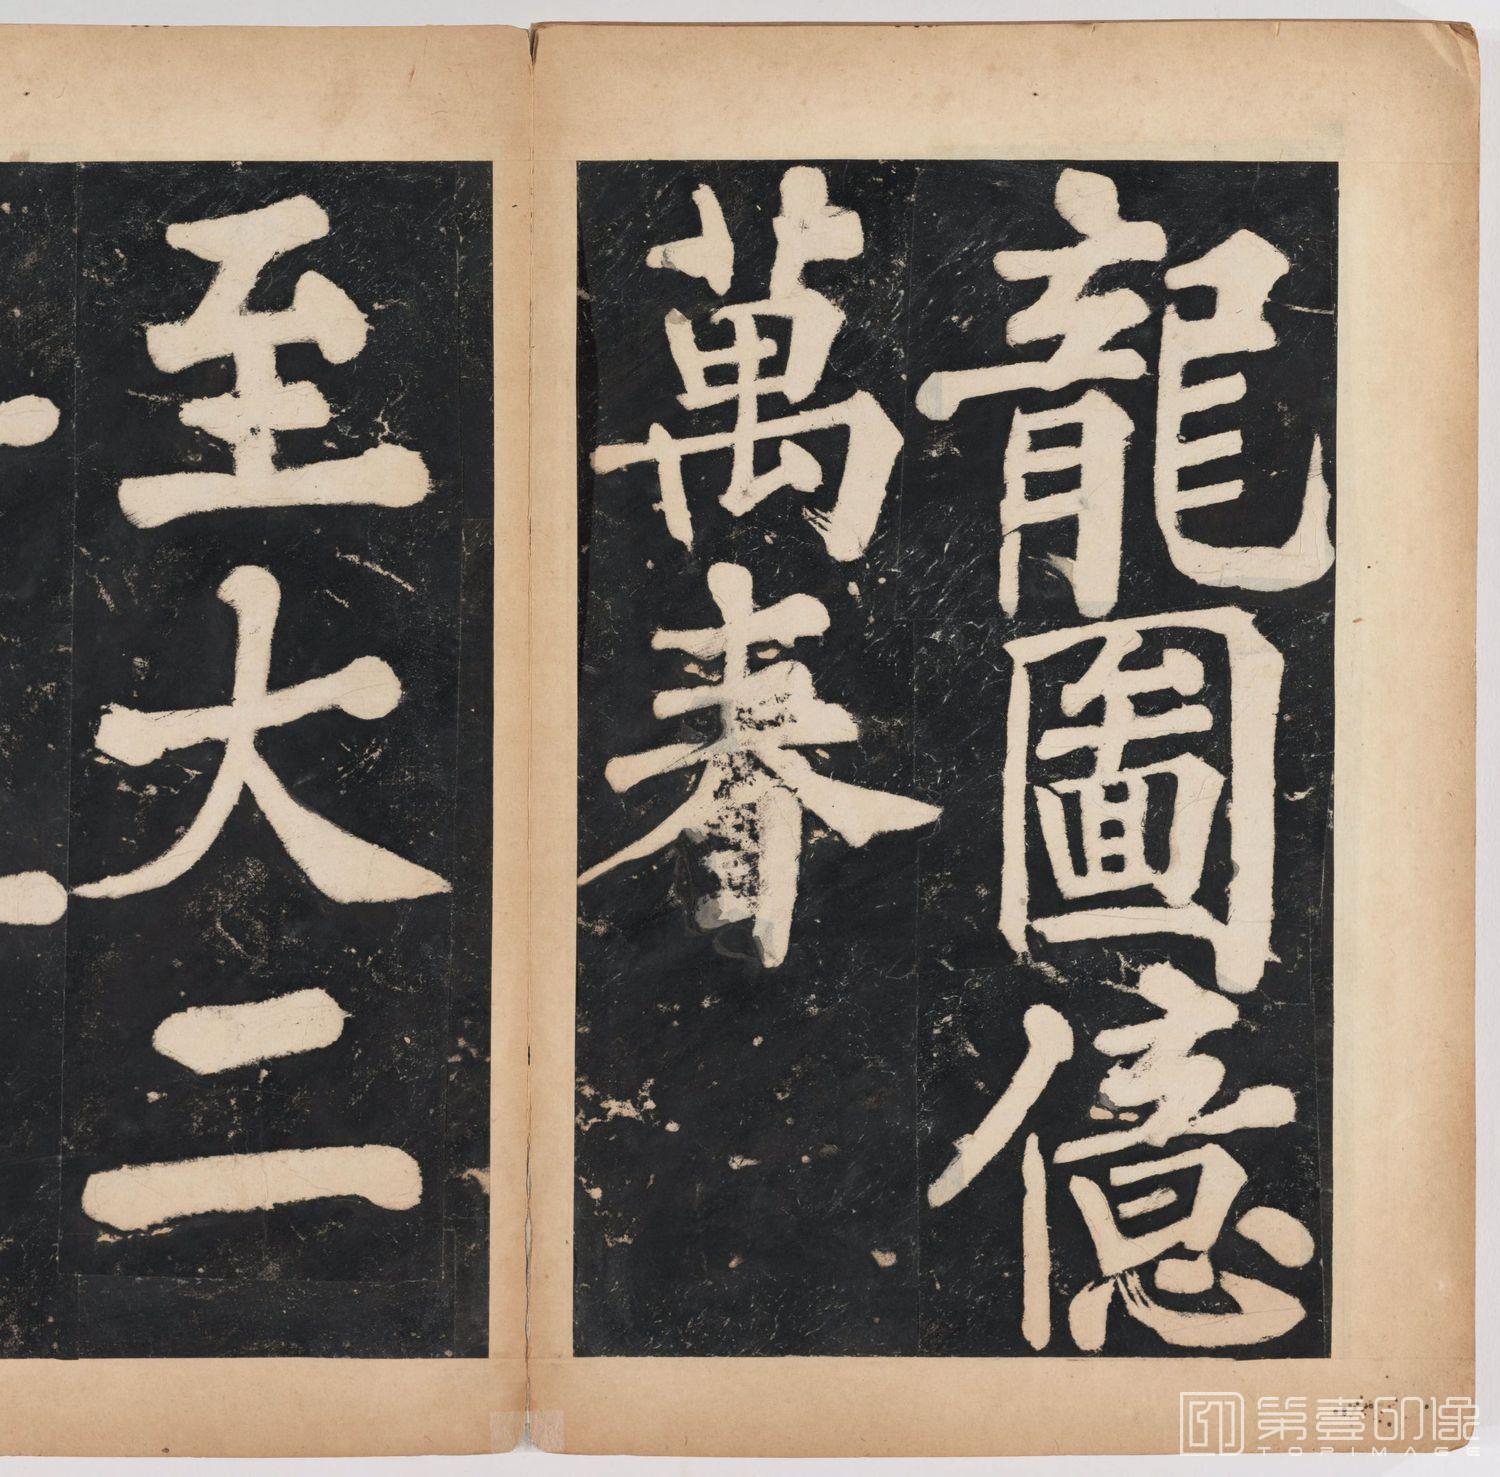 龍圖億
萬春
至大二
第壹印像
TOPIMAGE